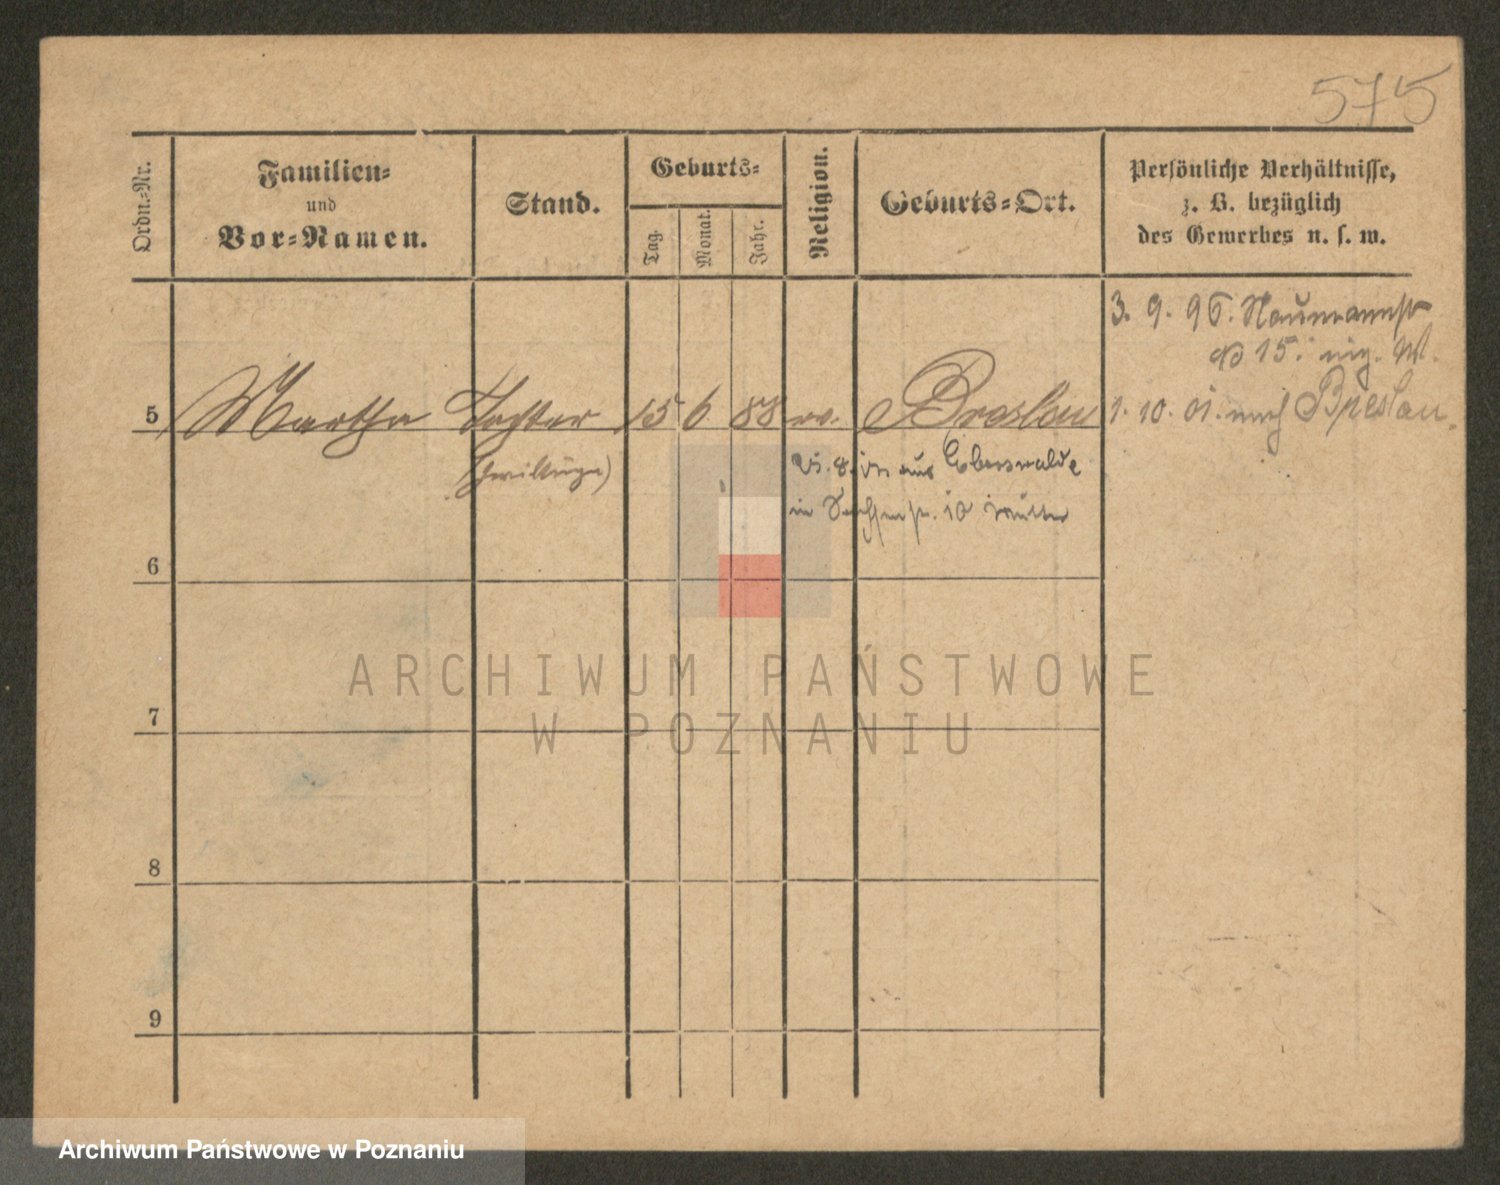 575
Ordn.-Nr.
Familien-
und
Vor-Namen.
Stand.
Geburts-
Tag.
Monat.
Jahr.
Religion.
Geburts-Ort.
Persönliche Verhältnisse,
z. B. bezüglich
des Gewerbes u. s. w.
3. 9. 96. Naumannstr
No 15. eig. W.
5 Martha Tochter 15 6 88 ev. Breslau 1. 10. 01. nach Breslau.
(Zwillinge)
aus Eberswalde
in 10
6
7
8
9
ARCHIWUM PAŃSTWOWE
W POZNANIU
Archiwum Państwowe w Poznaniu